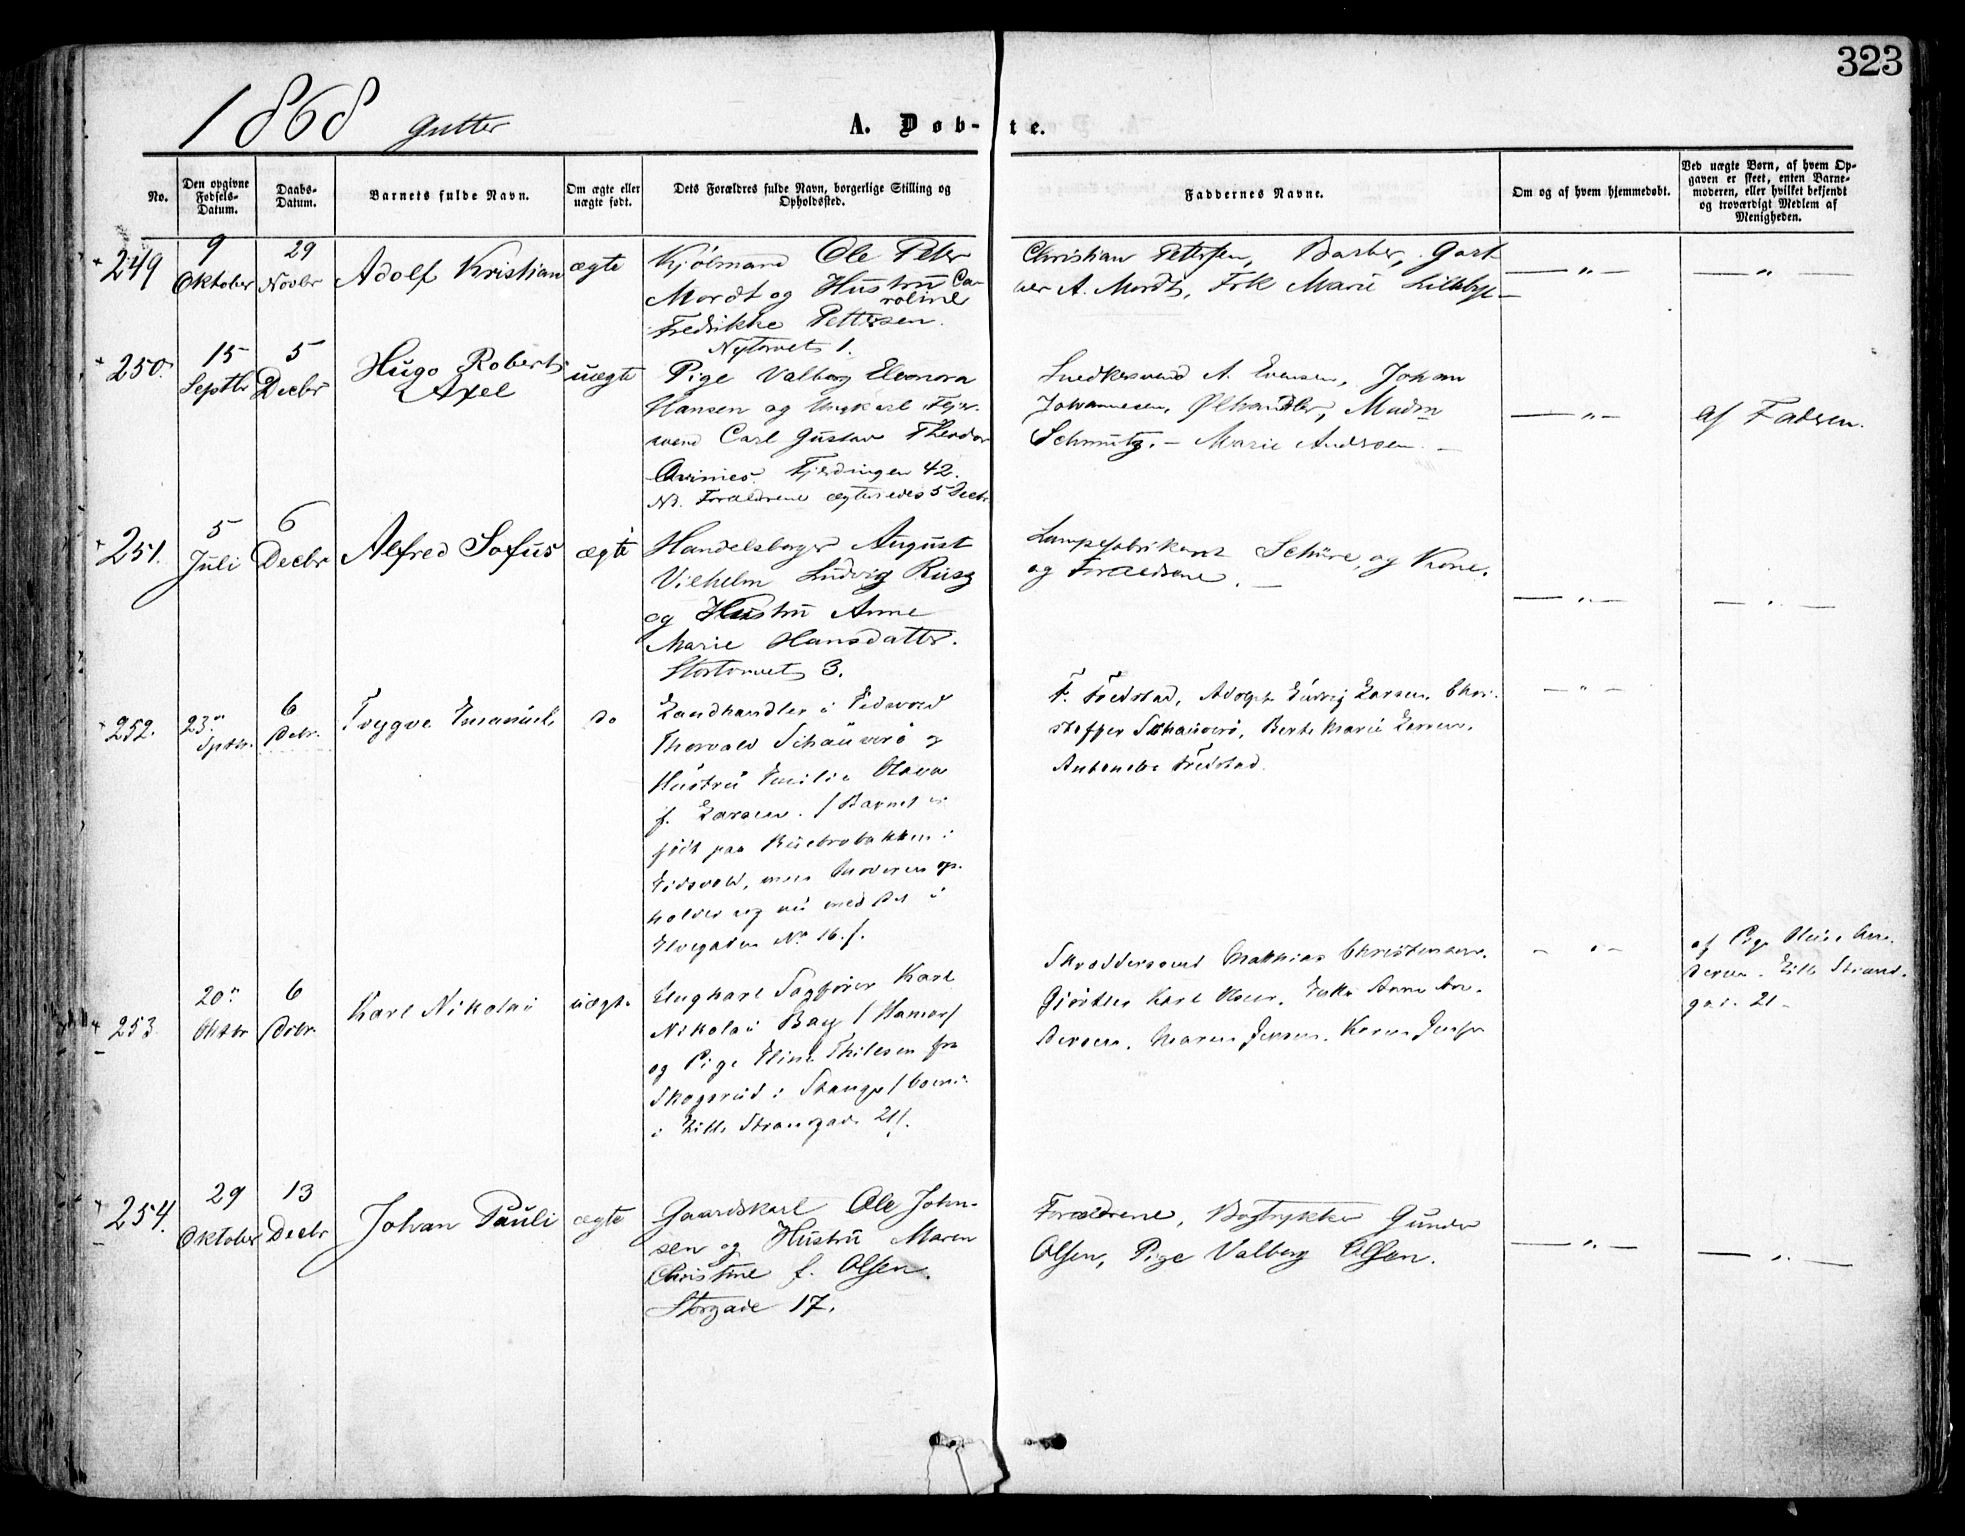 323
1868 Gutter
A. Døb- te.
No.
Den opgivne Fødsels-Datum.
Daabs-Datum.
Barnets fulde Navn.
Om ægte eller uægte født.
Dets Forældres fulde Navn, borgerlige Stilling og Opholdssted.
Faddernes Navne.
Om og af hvem hjemmedøbt.
Ved uægte Børn, af hvem Opgaven er skeet, enten Barnemoderen, eller hvilket bekjendt og troværdigt Medlem af Menigheden.
249 9 Oktober 29 Novbr Adolf Kristian ægte
Kjólmand Ole Peter
Mordt og Hustrü Caroline
Fredrikke Pettersen.
Nytorvet 1.
Christian Petersen, Barber, Gart
ner A. Mordt, Frk Marie
250. 15 Septbr 5 Decbr Hugo Robert Axel uægte
Pige Valborg Eleonora
Hansen og Ungkarl
svend Carl Gustav Theodor
Fjerdingen 42.
Nb. Forældrene ægteviedes 5 Decbr
Snedkersvend A. Evensen, Johan
Johannesen, Ølhandler, Madm
Schmutz. – Marie Andersen. –
af Faderen.
251. 5 Juli 6 Decbr Alfred Sofus ægte
Handelsborger August
Vilhelm Ludvig
og Hustrü Anne
Marie Hansdatter.
Stortorvet 3.
Lampefabrikant og Kone,
og Forældrene. –
252. 23de Septbr. 6 Debr. Trygve Emanüel do
Landhandler i Eidsvold
Thorvald og
Hüstrü Emilie Olava
f. Larsen. / Barnet er
født paa i
Eidsvold, men Moderen op-
holder sig nü med det i
Elvegaden No 16. /.
F. Fredstad, Adolph Lüdvig Larsen, Chri-
stoffer Berte Marie Larsen,
Fredstad.
253. 20de Oktbr 6 Debr. Karl Nikolai üægte
Ungkarl Sagfører Karl
Nikolai Bay / Hamar /
og Pige Eline Thilesen fra
Skogsrüd i Stange / boende
i Lille Strandgade 21 /.
Skræddersvend Mathias Christensen,
Gjørtler Karl Olsen, Enke Anne An-
dersen, Maren Jensen, Karen
af Pige An-
dersen. Lille Strand-
gad. 21 –
254. 29 Oktober 13 Decbr Johan Paüli ægte
Gaardskarl Ole John-
sen og Hustrü Maren
Christine f. Olsen.
Storgade 17.
Forældrene, Bogtrykker Gunder
Olsen, Pige Valborg Olsen.